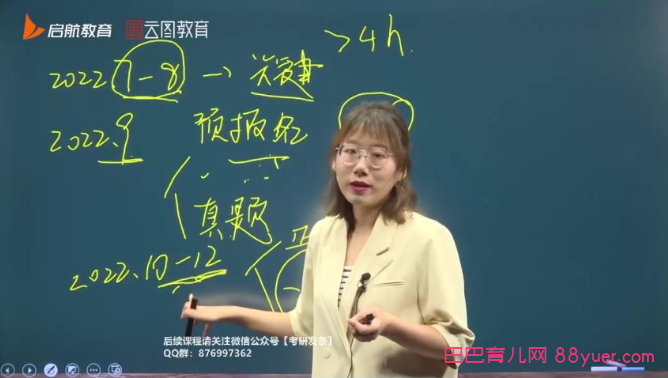 启航教育 云图教育
>4h.
2022.7-8 → 关键
2022.9 预报名
真题
2022.10-12
后续课程请关注微信公众号【考研发条】
QQ群：876997362
巴巴育儿网 88yuer.com